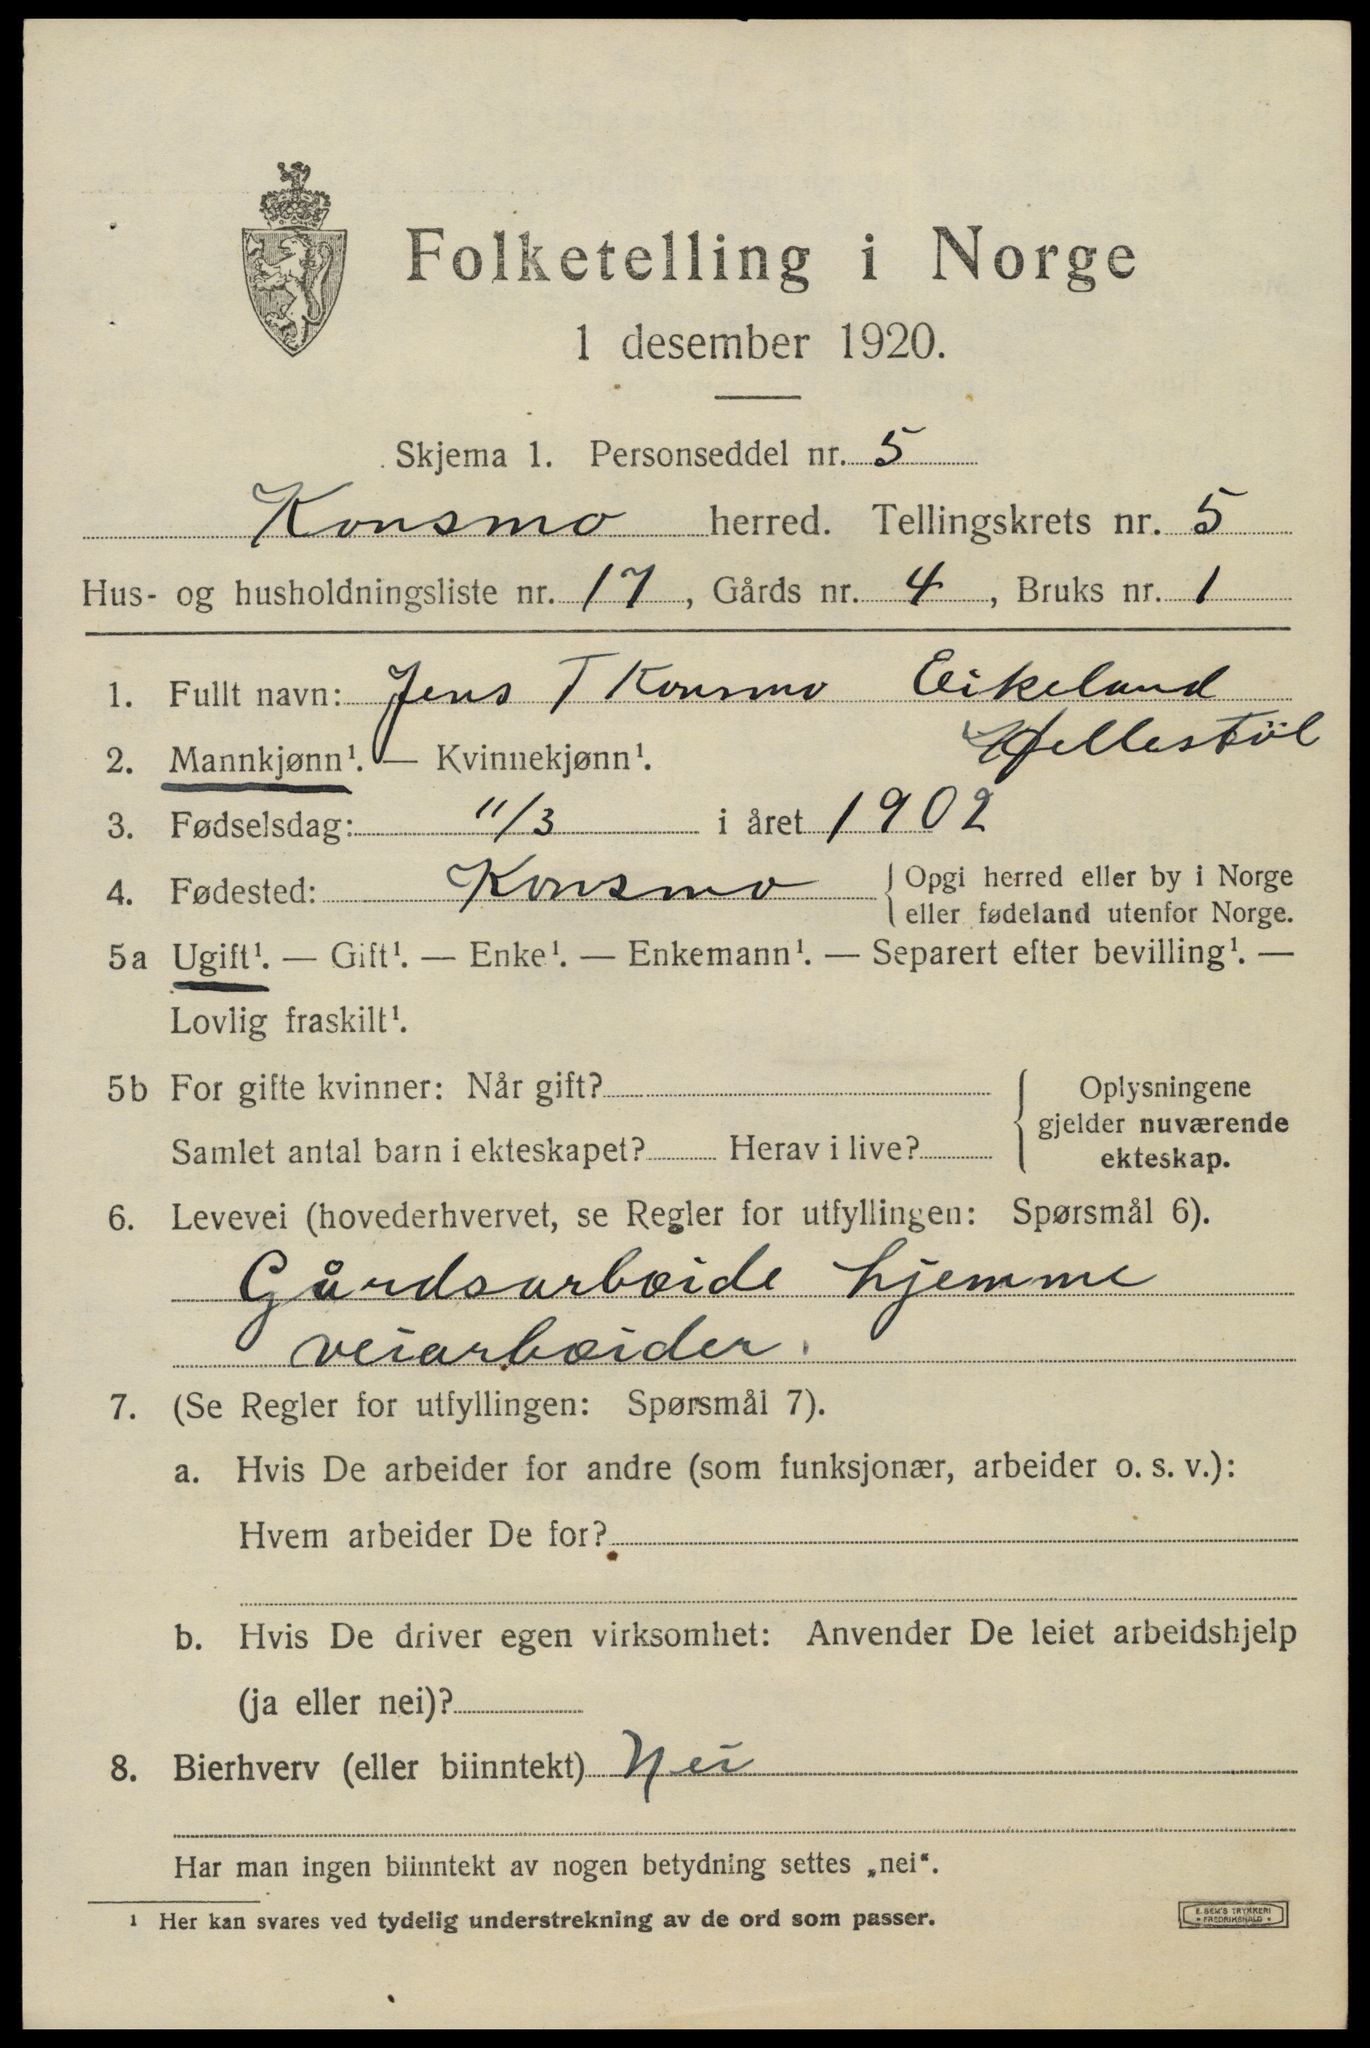 Folketelling i Norge
1 desember 1920.
Skjema 1. Personseddel nr. 5
Konsmo herred. Tellingskrets nr. 5
Hus- og husholdningsliste nr. 17, Gårds nr. 4, Bruks nr. 1
1. Fullt navn: Jens T Konsmo Eikeland
Hellestöl
2. Mannkjønn¹. — Kvinnekjønn¹.
3. Fødselsdag: 11/3 i året 1902
4. Fødested: Konsmo { Opgi herred eller by i Norge
eller fødeland utenfor Norge.
5a Ugift¹. — Gift¹. — Enke¹. — Enkemann¹. — Separert efter bevilling¹. —
Lovlig fraskilt¹.
5b For gifte kvinner: Når gift?
Samlet antal barn i ekteskapet? Herav i live?
{ Oplysningene
gjelder nuværende
ekteskap.
6. Levevei (hovederhvervet, se Regler for utfyllingen: Spørsmål 6).
Gårdsarbeide hjemme
veiarbeider.
7. (Se Regler for utfyllingen: Spørsmål 7).
a. Hvis De arbeider for andre (som funksjonær, arbeider o. s. v.):
Hvem arbeider De for?
b. Hvis De driver egen virksomhet: Anvender De leiet arbeidshjelp
(ja eller nei)?
8. Bierhverv (eller biinntekt) Nei
Har man ingen biinntekt av nogen betydning settes „nei“.
¹ Her kan svares ved tydelig understrekning av de ord som passer.
E. SEM'S TRYKKERI
* FREDRIKSHALD *